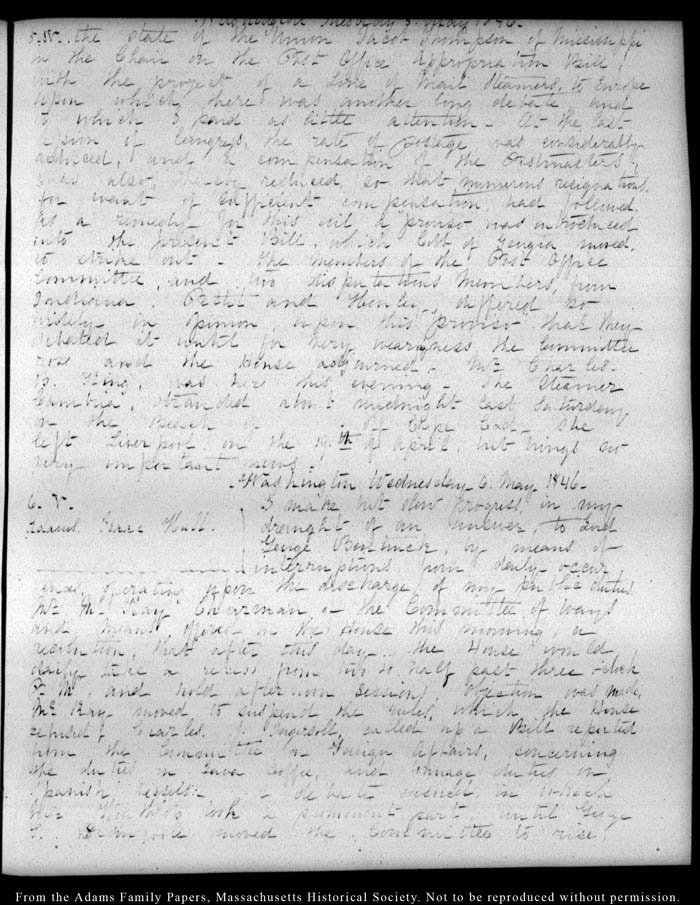 Washington Tuesday 5. May 1846.
5. IV. the state of the Union Jacob Thompson of Mississippi
in the Chair on the Post Office Appropriation Bill
with the project of a Line of Mail Steamers, to Europe
upon which there was another long debate and
to which I paid as little attention. At the last
session of Congress, the rate of postage, was considerably
reduced, and a compensation of the Postmasters
was also, thereby reduced, so that numerous resignations
for want of sufficient compensation had followed
As a remedy for this evil a proviso was introduced
into the present Bill, which Cobb of Georgia moved,
to strike out. The members of the Post Office
Committee, and two disputatious members, from
Indiana, Pettit and Henley, differed so
widely in opinion, upon this proviso, that they
debated it until for very weariness, the Committee
rose and the House adjourned. Mr Charles
B. King, was here this evening. The Steamer
Cambria, stranded about midnight last Saturday
on the beach of off Cape Cod. She
left Liverpool on the 19th of April, but brings no
very important news.
Washington Wednesday 6. May 1846.
6. V.
Adams, Isaac Hull.
I make but slow progress, in my
draught of an answer, to Lord
George Bentinck, by means of
interruptions from daily occur
ences, operating upon the discharge of my public duties
Mr McKay Chairman of the Committee of Ways
and Means offered in the House this morning, a
resolution, that after this day the House would
daily take a recess from two to half past three o'clock
P. M, and hold afternoon Sessions. Objection was made,
McKay moved to suspend the rules, which the House
refused. Charles J. Ingersoll, called up a Bill reported
from the Committee on Foreign Affairs, concerning
the duties on Java Coffee, and tonnage duties on
Spanish vessels. a debate ensued, in which
took a prominent part, until George
C. Dromgoole moved the Committee to rise,
From the Adams Family Papers, Massachusetts Historical Society. Not to be reproduced without permission.